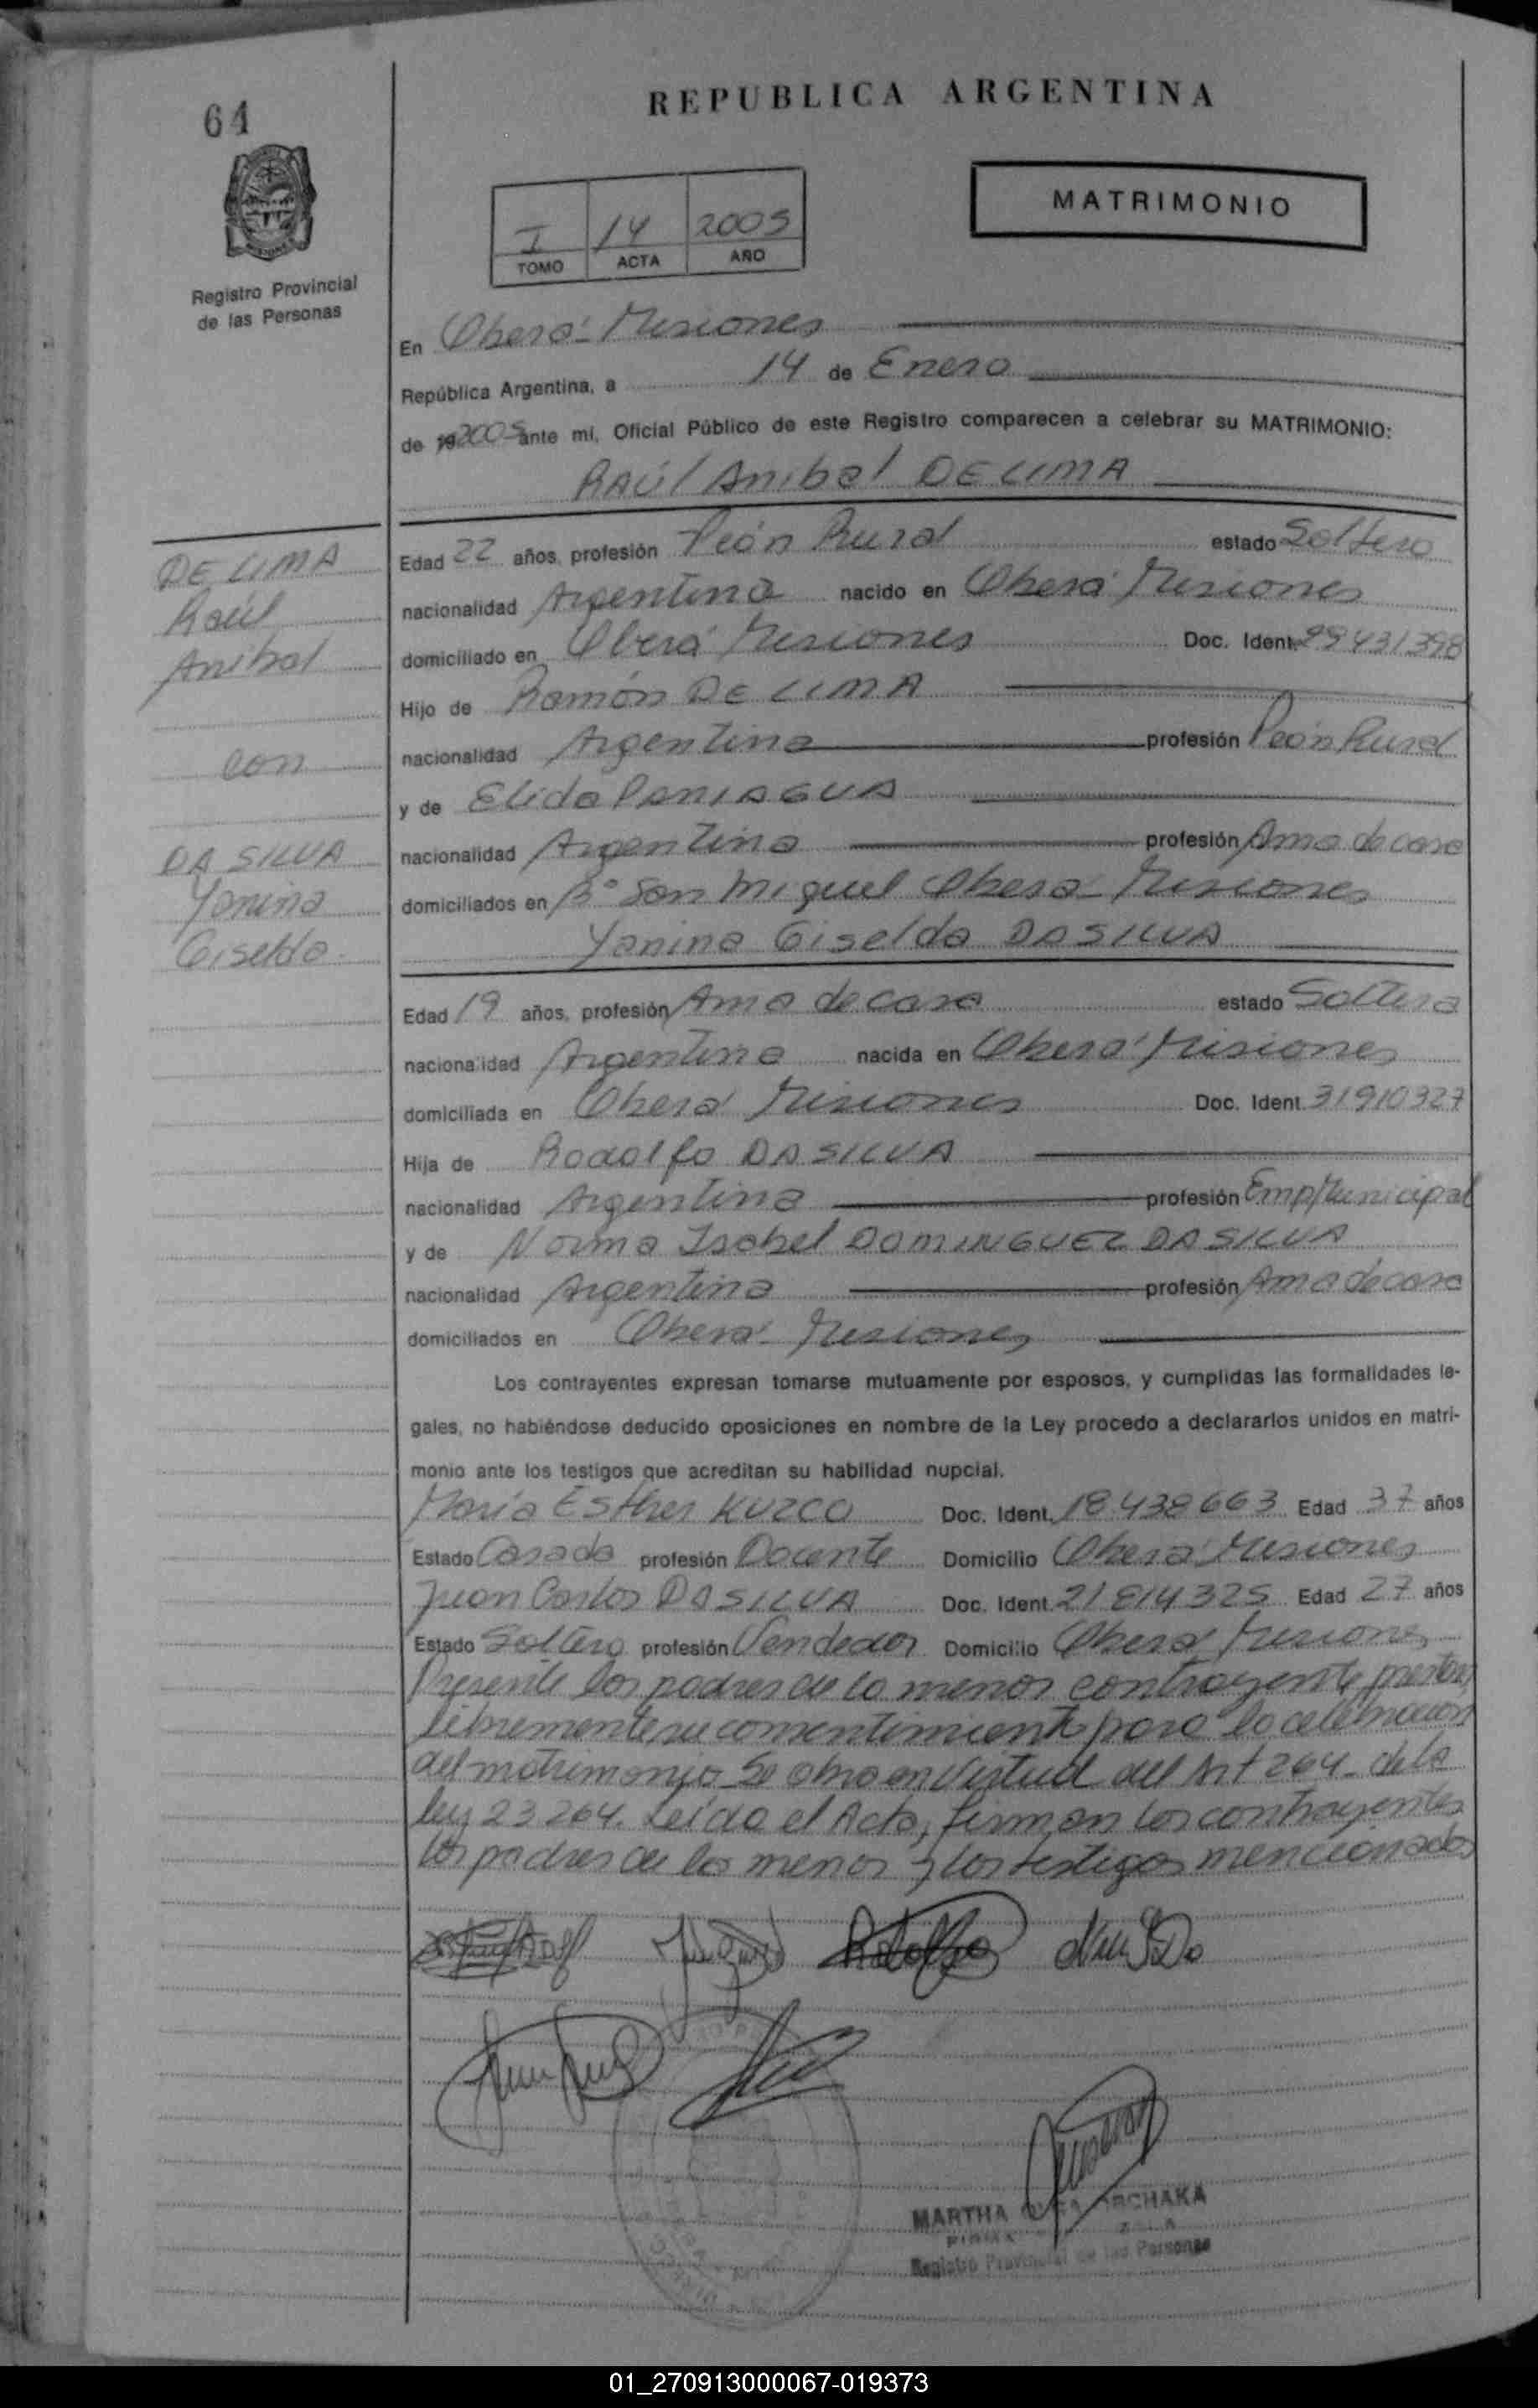 REPUBLICA ARGENTINA
64
MATRIMONIO
I 14 2005
TOMO ACTA AÑO
Registro Provincial
de las Personas
En Oberá - Misiones
República Argentina, a 14 de Enero
de 19 2005 ante mi, Oficial Público de este Registro comparecen a celebrar su MATRIMONIO:
RAÚl Anibal DE LIMA
DE LIMA
Raúl
Anibal
con
DA SILVA
Yanina
Giselda.
Edad 22 años, profesión Peón Rural estado Soltero
nacionalidad Argentina nacido en Oberá Misiones
domiciliado en Oberá Misiones Doc. Ident. 29431398
Hijo de Ramón DE LIMA
nacionalidad Argentina profesión Peón Rural
y de Elida PANIAGUA
nacionalidad Argentina profesión Ama de casa
domiciliados en Bº San Miguel Oberá - Misiones
Yanina Giselda DA SILVA
Edad 19 años, profesión Ama de casa estado Soltera
nacionalidad Argentina nacida en Oberá Misiones
domiciliada en Oberá Misiones Doc. Ident. 31910327
Hija de Rodolfo DA SILVA
nacionalidad Argentina profesión Emp/Municipal
y de Norma Isabel DOMINGUEZ DA SILVA
nacionalidad Argentina profesión Ama de casa
domiciliados en Oberá - Misiones
Los contrayentes expresan tomarse mutuamente por esposos, y cumplidas las formalidades le-
gales, no habiéndose deducido oposiciones en nombre de la Ley procedo a declararlos unidos en matri-
monio ante los testigos que acreditan su habilidad nupcial.
María Esther KUZCO Doc. Ident. 18438663 Edad 37 años
Estado Casada profesión Docente Domicilio Oberá Misiones
Juan Carlos DA SILVA Doc. Ident. 21814325 Edad 27 años
Estado Soltero profesión Vendedor Domicilio Oberá Misiones
Presente los padres de la menor contrayente prestan
libremente su consentimiento para la celebracion
del matrimonio Se obra en Virtud del Art 264 - de la
ley 23264. Leída el Acta, firman los contrayentes
los padres de los menor y los testigos mencionados
Rodolfo
MARTHA
Registro Provincial de las Personas
01_270913000067-019373